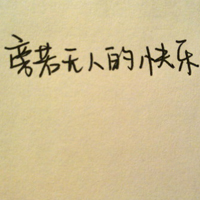 旁若无人的快乐